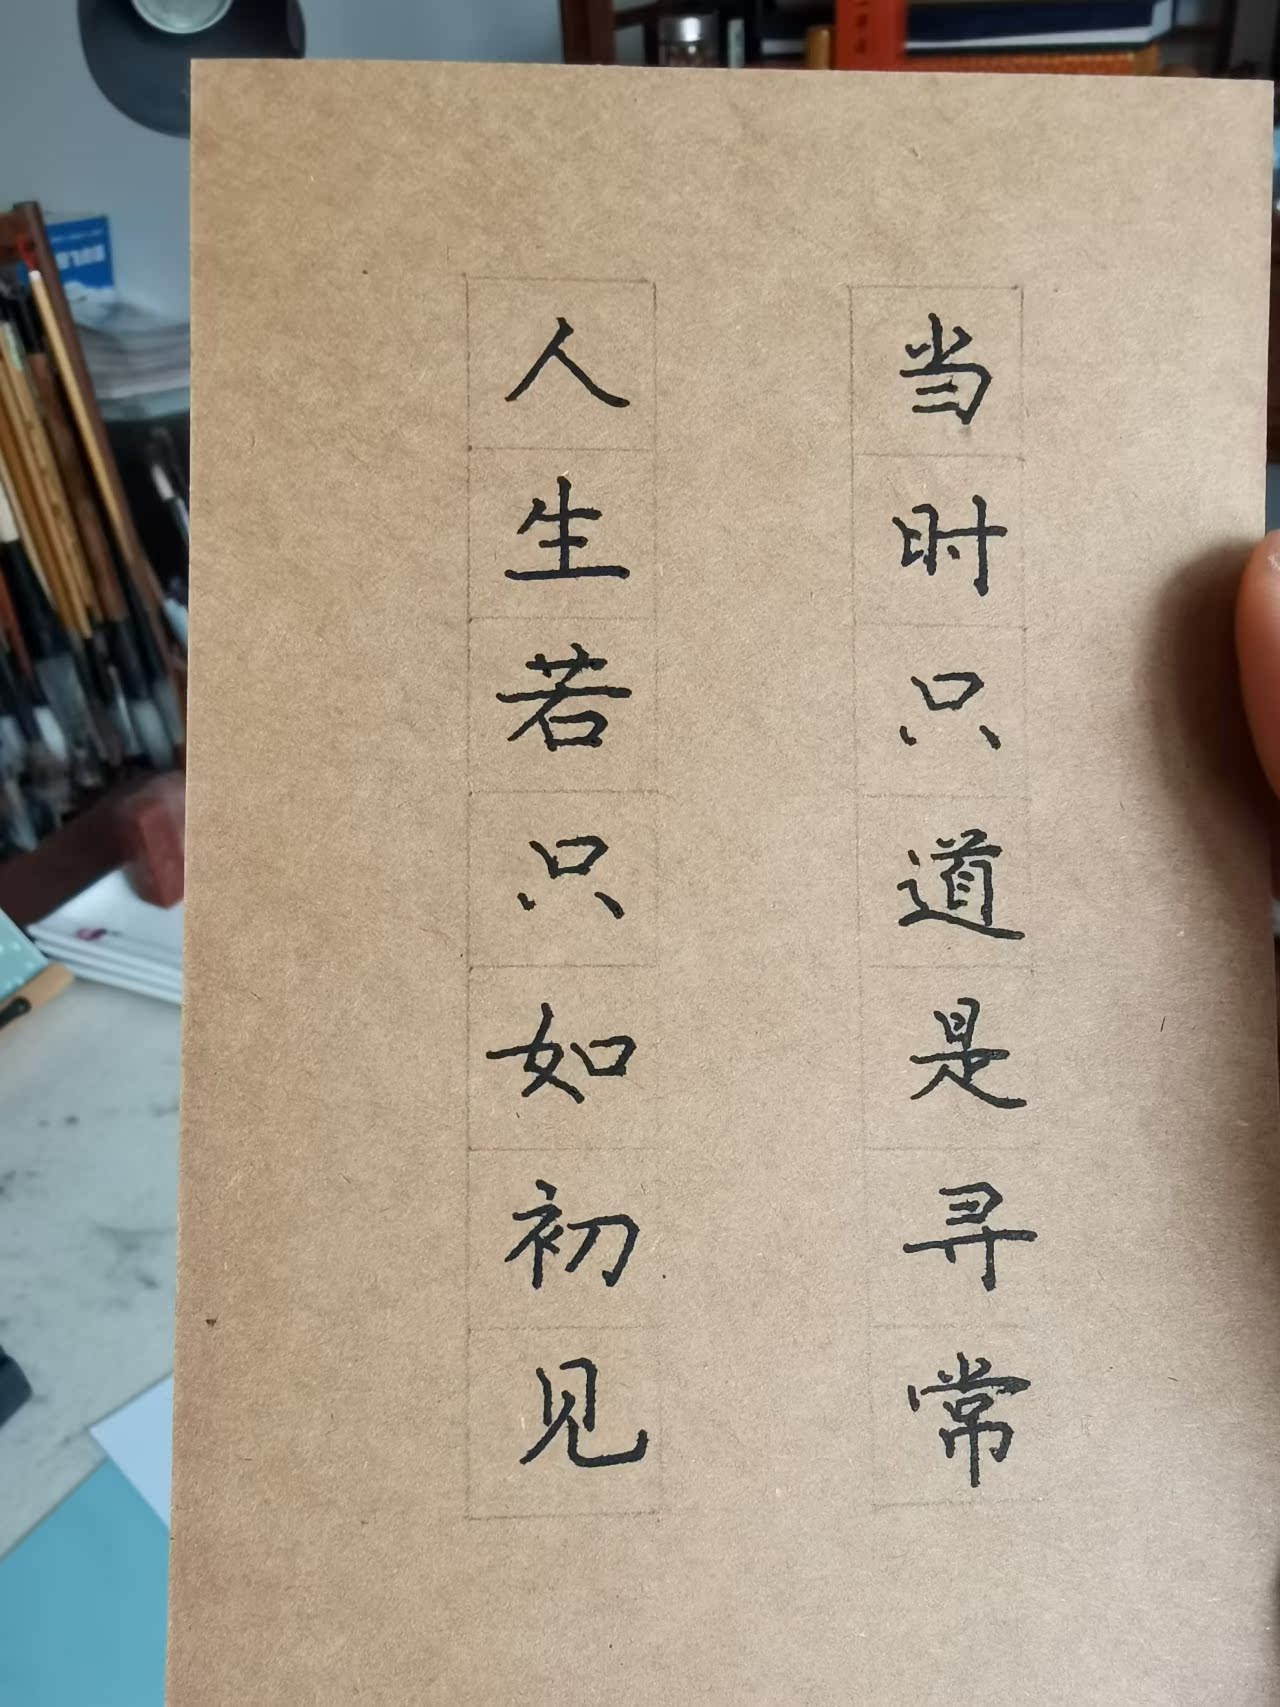 当时只道是寻常
人生若只如初见